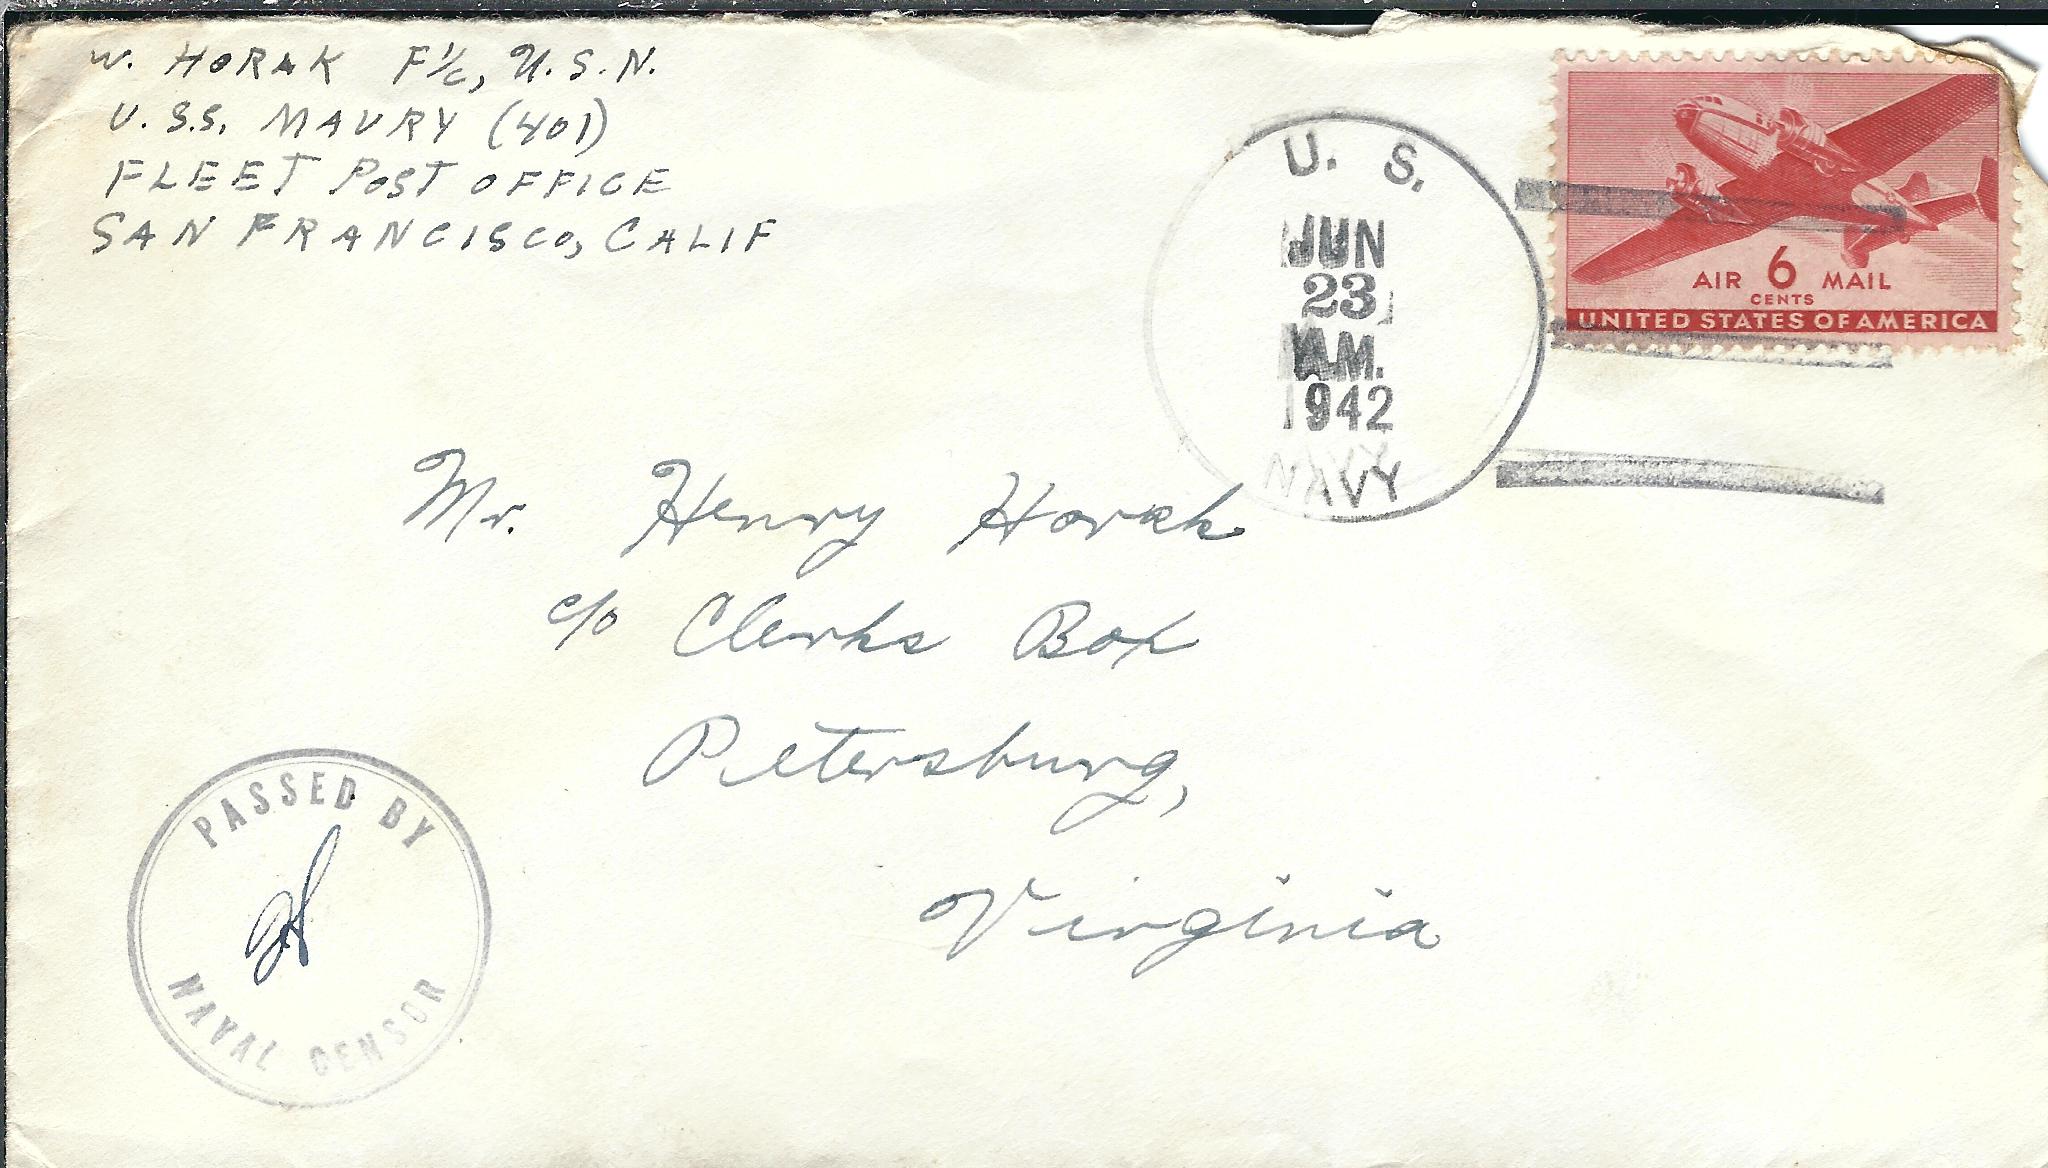 W. HORAK F 1/c, U.S.N.
U.S.S. MAURY (401)
FLEET POST OFFICE
SAN FRANCISCO, CALIF
U. S.
JUN
23
A.M.
1942
NAVY
AIR 6 MAIL
CENTS
UNITED STATES OF AMERICA
Mr. Henry Horak
c/o Clerks Box
Petersburg,
Virginia
PASSED BY
NAVAL CENSOR